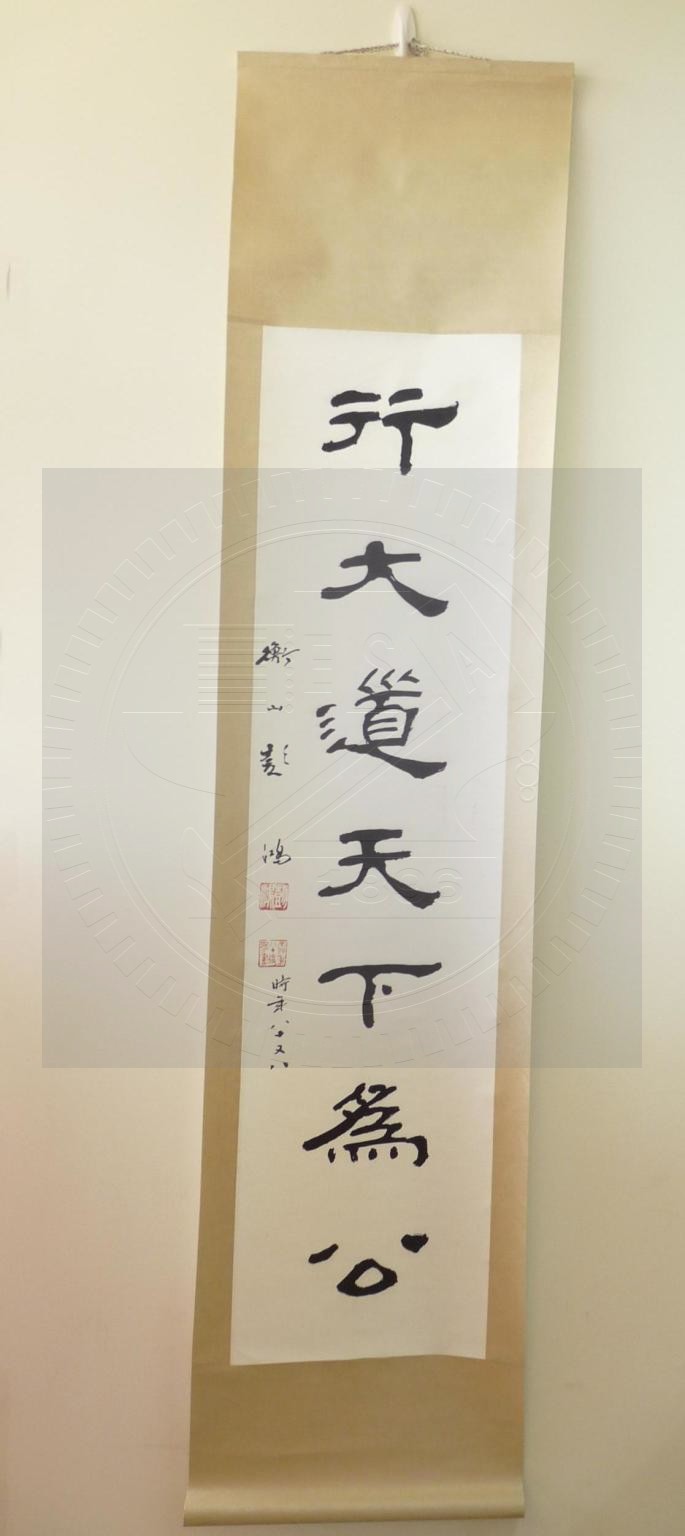 行大道天下為公
衡山彭鴻
時年八十又八